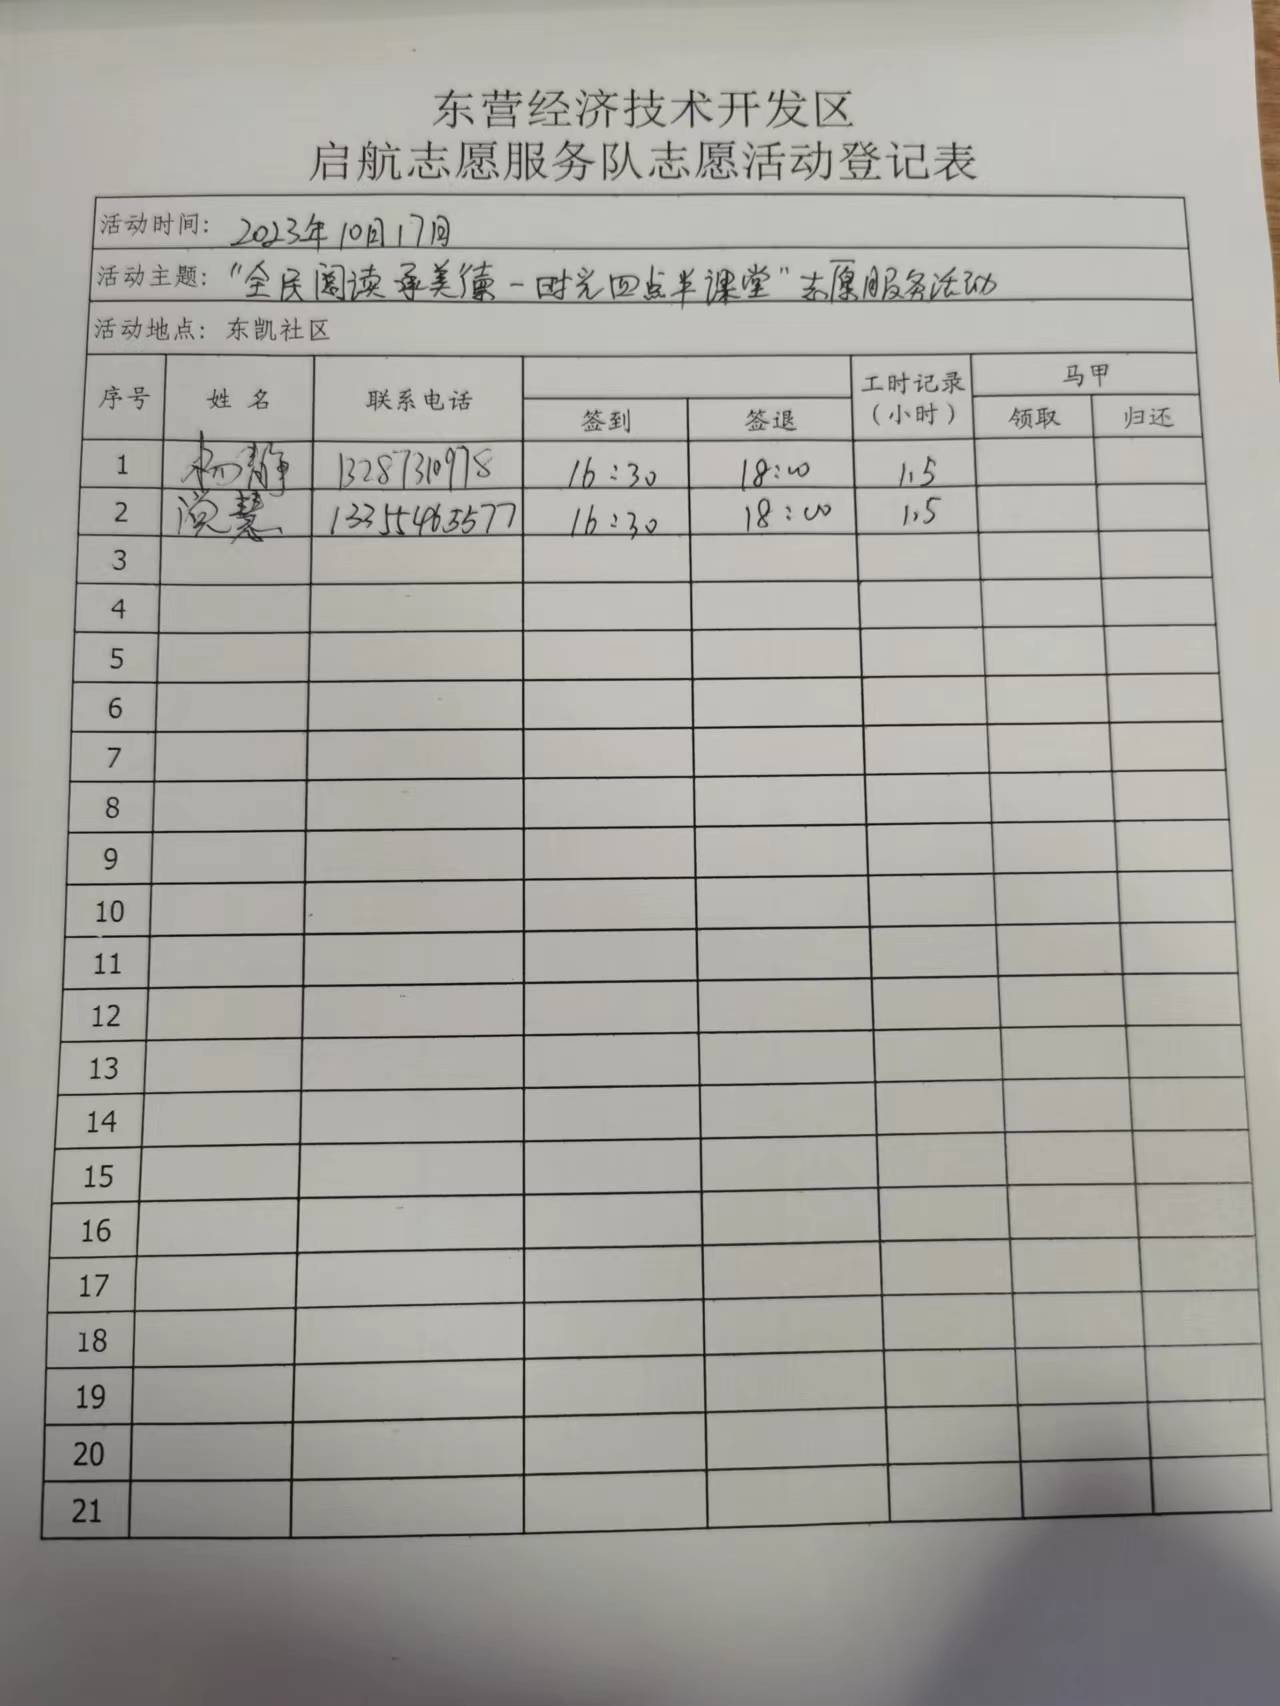 东营经济技术开发区
启航志愿服务队志愿活动登记表
活动时间: 2023年10月17日
活动主题: "全民阅读 承美德-时光四点半课堂"志愿服务活动
活动地点: 东凯社区
序号 姓名 联系电话 工时记录(小时) 马甲
签到 签退 领取 归还
1 杨静 13287310978 16:30 18:00 1.5
2 慧 13355465577 16:30 18:00 1.5
3
4
5
6
7
8
9
10
11
12
13
14
15
16
17
18
19
20
21